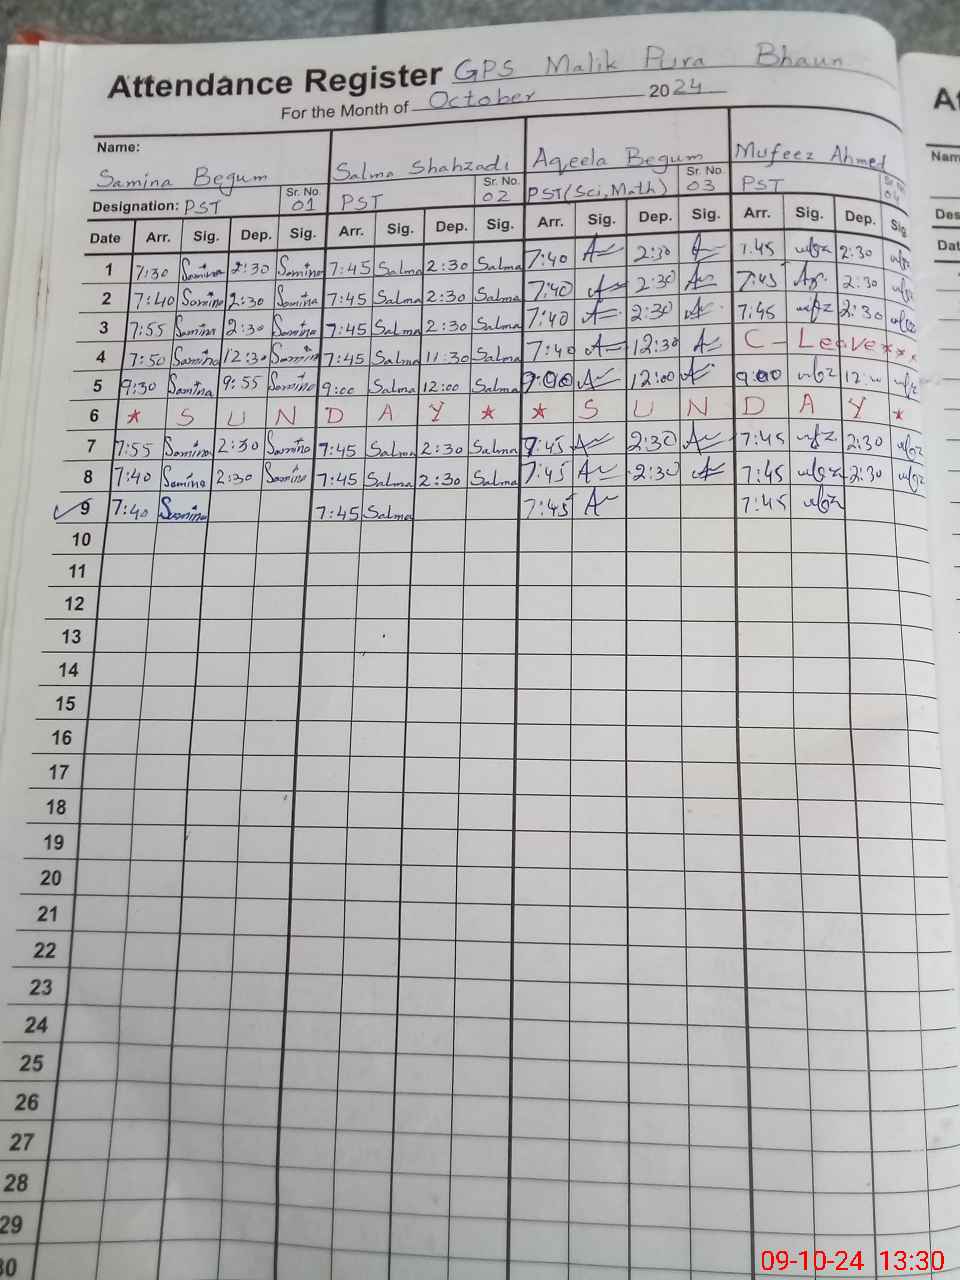 Attendance Register GPS Malik Pura Bhaun
For the Month of October 2024
Name: Samina Begum Salma Shahzadi Aqeela Begum Mufeez Ahmed
Designation: PST Sr. No. 01 PST Sr. No. 02 PST (Sci, Math) Sr. No. 03 PST Sr. No. 04
Date Arr. Sig. Dep. Sig. Arr. Sig. Dep. Sig. Arr. Sig. Dep. Sig. Arr. Sig. Dep. Sig.
1 7:30 Samina 2:30 Samina 7:45 Salma 2:30 Salma 7:40 2:30 7:45 2:30
2 7:40 Samina 2:30 Samina 7:45 Salma 2:30 Salma 7:40 2:30 7:45 2:30
3 7:55 Samina 2:30 Samina 7:45 Salma 2:30 Salma 7:40 2:30 7:45 2:30
4 7:50 Samina 12:30 Samina 7:45 Salma 11:30 Salma 7:40 12:30 C - Leave ***
5 9:30 Samina 9:55 Samina 9:00 Salma 12:00 Salma 9:00 12:00 9:00
6 * S U N D A Y * * S U N D A Y *
7 7:55 Samina 2:30 Samina 7:45 Salma 2:30 Salma 7:45 2:30 7:45 2:30
8 7:40 Samina 2:30 Samina 7:45 Salma 2:30 Salma 7:45 2:30 7:45 2:30
9 7:40 Samina 7:45 Salma 7:45 7:45
10
11
12
13
14
15
16
17
18
19
20
21
22
23
24
25
26
27
28
29
30
09-10-24 13:30